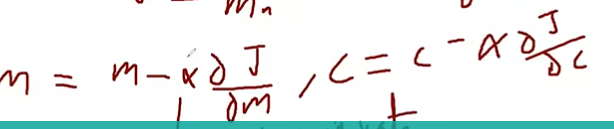 m = m - α ∂J/∂m , c = c - α ∂J/∂c